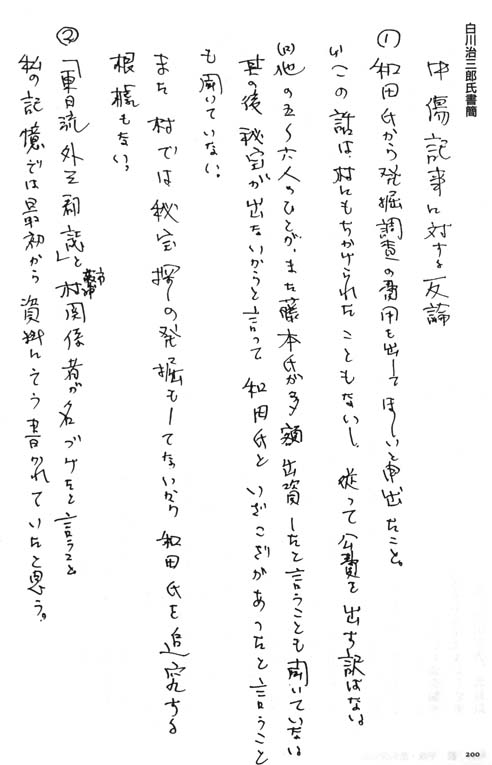 白川治三郎氏書簡
中傷記事に対する反論
① 和田氏から発掘調査の費用を出してほしいと申出たこと。
(イ)この話は、村にもちかけられたこともないし、従って公費を出す訳はない
(ロ)他の五〜六人のひとが、また藤本氏が多額出資したと言うことも聞いていないし
其の後秘宝が出ないからと言って 和田氏といざこざがあったと言うこと
も聞いていない。
また 村では 秘宝探しの発掘もしてないから 和田氏を追究する
根拠もない。
② 「東日流外三郡誌」と村関係者が名づけたと言うこと
私の記憶では最初から資料にそう書かれていたと思う。
200